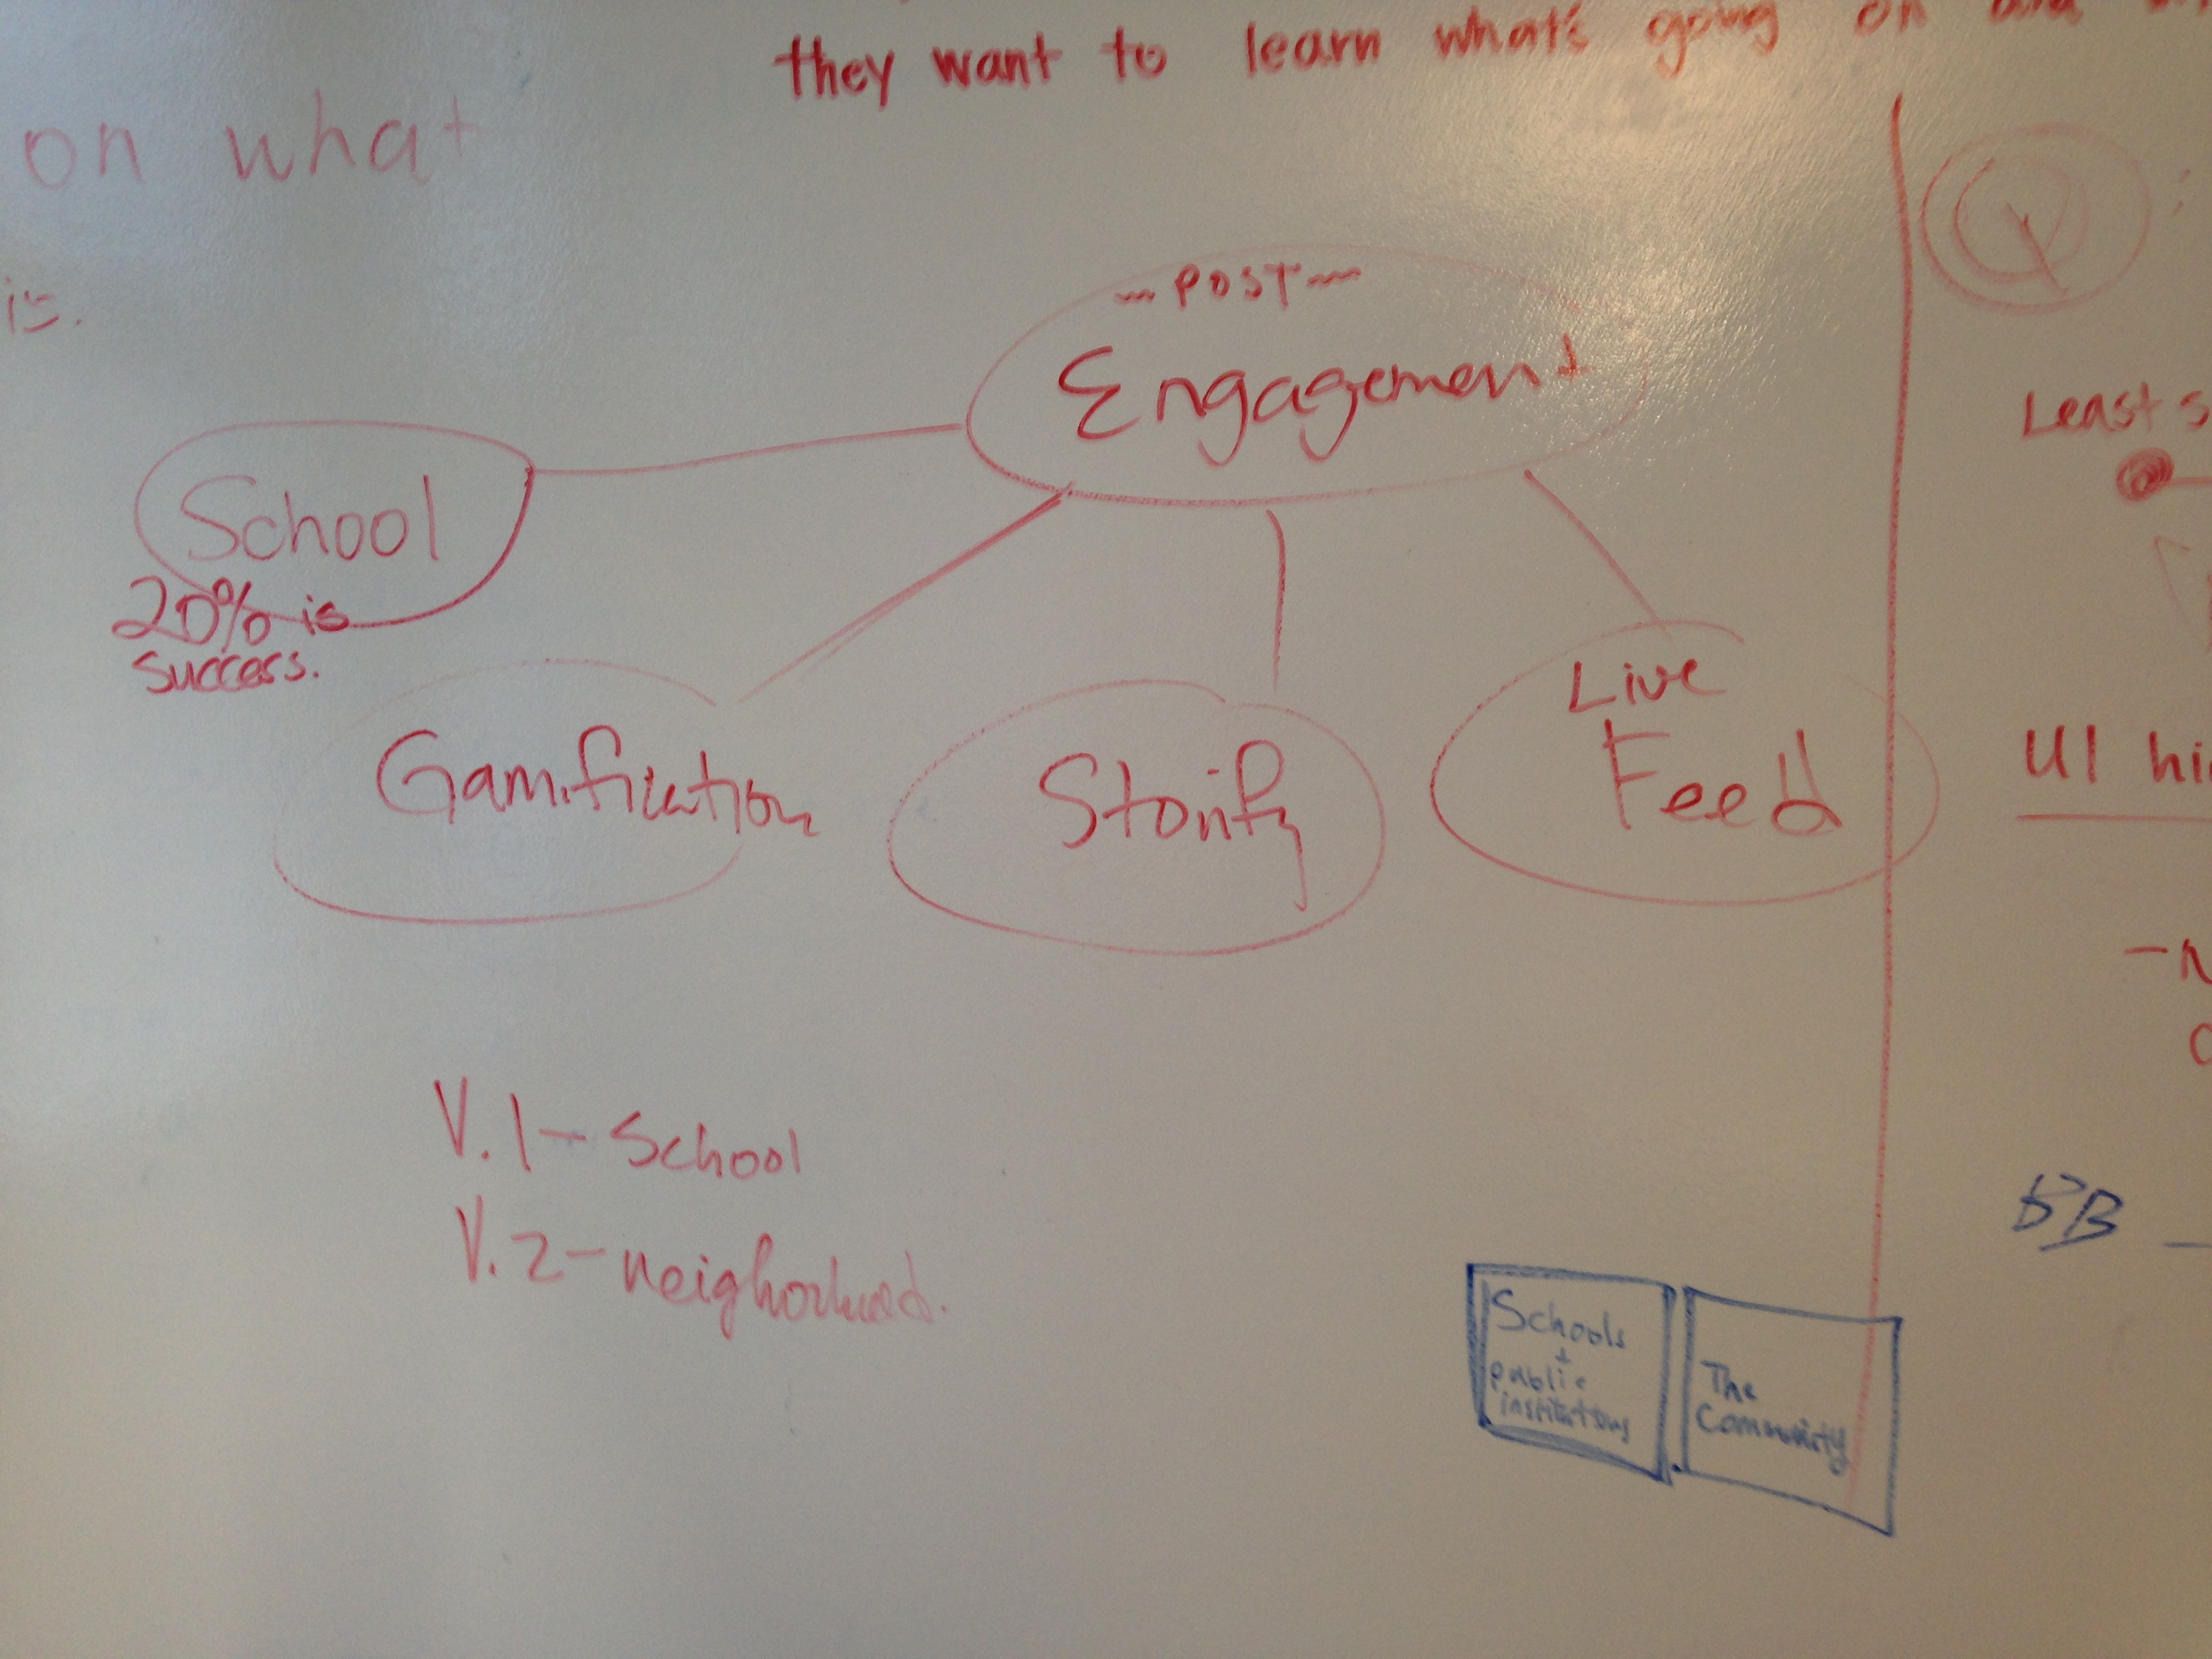 they want to learn what's going on and
on what
is.
~ POST ~
Engagement
School
20% is
success.
Gamification
Storify
Live
Feed
V.1 - School
V.2 - neighorhood.
Schools
+
public
institutions
The
Community
Q :
Least s
UI hi
BB